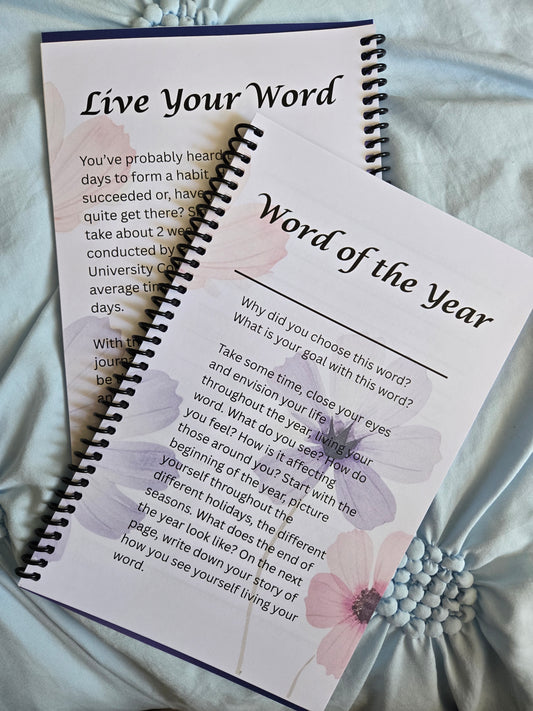 Live Your Word
You've probably heard
days to form a habit
succeeded or, have
quite get there?
take about 2
conducted by
University
average
days.
With
Word of the Year
Why did you choose this word?
What is your goal with this word?
Take some time, close your eyes
and envision your life
throughout the year, living your
word. What do you see? How do
you feel? How is it affecting
those around you? Start with the
beginning of the year, picture
yourself throughout the
different holidays, the different
seasons. What does the end of
the year look like? On the next
page, write down your story of
how you see yourself living your
word.